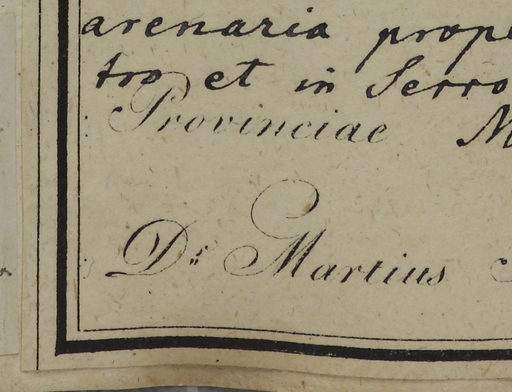 arenaria prope
tro et in Serro
Provinciae M
Dr. Martius